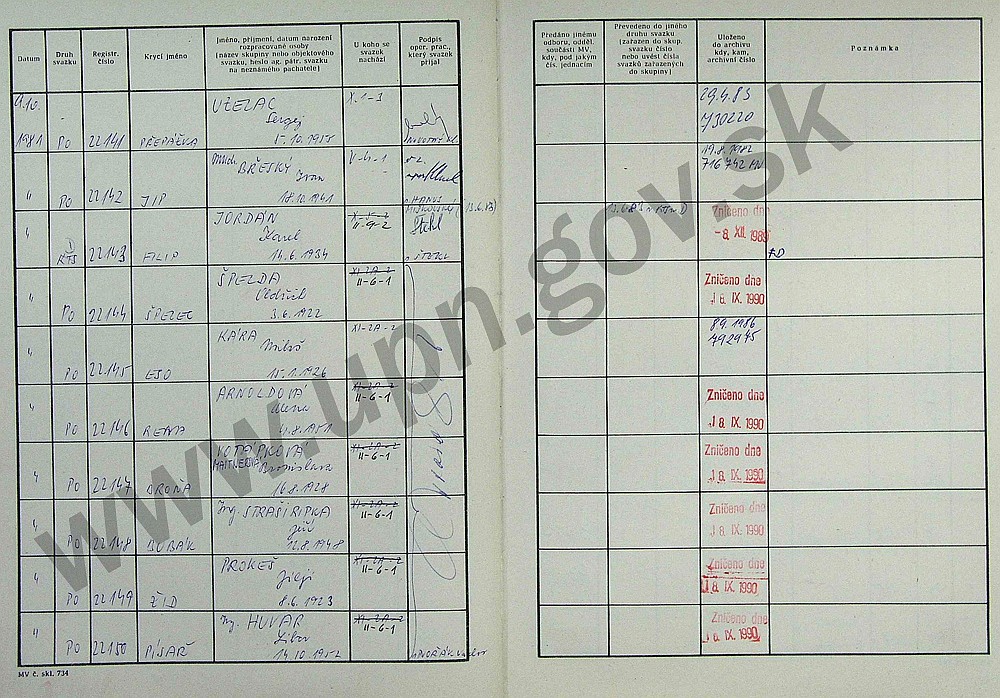 Datum
Druh svazku
Registr. číslo
Krycí jméno
Jméno, příjmení, datum narození
rozpracované osoby
(název skupiny nebo objektového
svazku, heslo ag. pátr. svazku
na neznámého pachatele)
U koho se
svazek
nachází
Podpis
oper. prac.,
který svazek
přijal
Předáno jinému
odboru, odděl.
součásti MV,
kdy, pod jakým
čís. jednacím
Převedeno do jiného
druhu svazku
(zařazen do skup.
svazku číslo
nebo uvést čísla
svazků zařazených
do skupiny)
Uloženo
do archivu
kdy, kam,
archivní číslo
Poznámka
9.10. UŽELAC X-1-3 29.4.83
Sergej 730220
1981 PO 22141 PŘEPÁŽKA 5.10.1955
BŘESKÝ V-4-1 19.8.1982
Ivan 716742 MV
" PO 22142 JIP 18.10.1941 HANUS
JORDÁN X-5-2 Zničeno dne
Karel II-9-2 -8. XII. 1989
" KTS 22143 FILIP 14.6.1934
ŠPELDA XI-2A-2 Zničeno dne
Oldřich II-6-1 18. IX. 1990
" PO 22144 ŠPELEC 3.6.1922
KÁRA XI-2A-2 8.9.1986
Miloš 792975
" PO 22145 ESO 15.1.1926
ARNOLDOVÁ XI-2A-2 Zničeno dne
Alena II-6-1 18. IX. 1990
" PO 22146 RENA 4.8.1951
KOTÁPKOVÁ XI-2A-2 Zničeno dne
Bronislava II-6-1 18. IX. 1990
" PO 22147 BROŇA 16.8.1928
Ing. STRAŠIRIPKA XI-2A-2 Zničeno dne
Jiří II-6-1 18. IX. 1990
" PO 22148 BUBÁK 12.8.1948
PROKEŠ XI-2A-2 Zničeno dne
Jiljí II-6-1 18. IX. 1990
" PO 22149 ŽID 8.6.1923
Ing. HUVAR XI-2A-2 Zničeno dne
Libor II-6-1 18. IX. 1990
" PO 22150 PÍSAŘ 14.10.1952 DVOŘÁK
MV č. skl. 734
www.upn.gov.sk